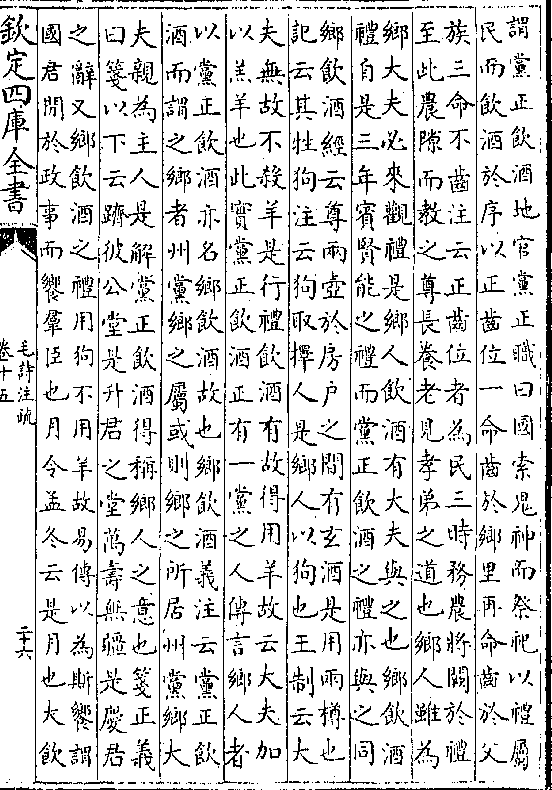 謂黨正飲酒地官黨正職曰國索鬼神而祭祀以禮屬
民而飲酒於序以正齒位一命齒於鄉里再命齒於父
族三命不齒注云正齒位者為民三時務農將闕於禮
至此農隙而教之尊長養老見孝弟之道也鄉人雖為
鄉大夫必來觀禮是鄉人飲酒有大夫與之也鄉飲酒
禮自是三年賓賢能之禮而黨正飲酒之禮亦與之同
鄉飲酒經云尊兩壺於房户之間有玄酒是用兩樽也
記云其牲狗注云狗取擇人是鄉人以狗也王制云大
夫無故不殺羊是行禮飲酒有故得用羊故云大夫加
以羔羊也此實黨正飲酒正有一黨之人傳言鄉人者
以黨正飲酒亦名鄉飲酒故也鄉飲酒義注云黨正飲
酒而謂之鄉者州黨鄉之屬或則鄉之所居州黨鄉大
夫親為主人是解黨正飲酒得稱鄉人之意也箋正義
曰箋以下云躋彼公堂是升君之堂萬壽無疆是慶君
之辭又鄉飲酒之禮用狗不用羊故易傳以為斯饗謂
國君閒於政事而饗羣臣也月令孟冬云是月也大飲
欽定四庫全書
毛詩注疏
卷十五
二十六